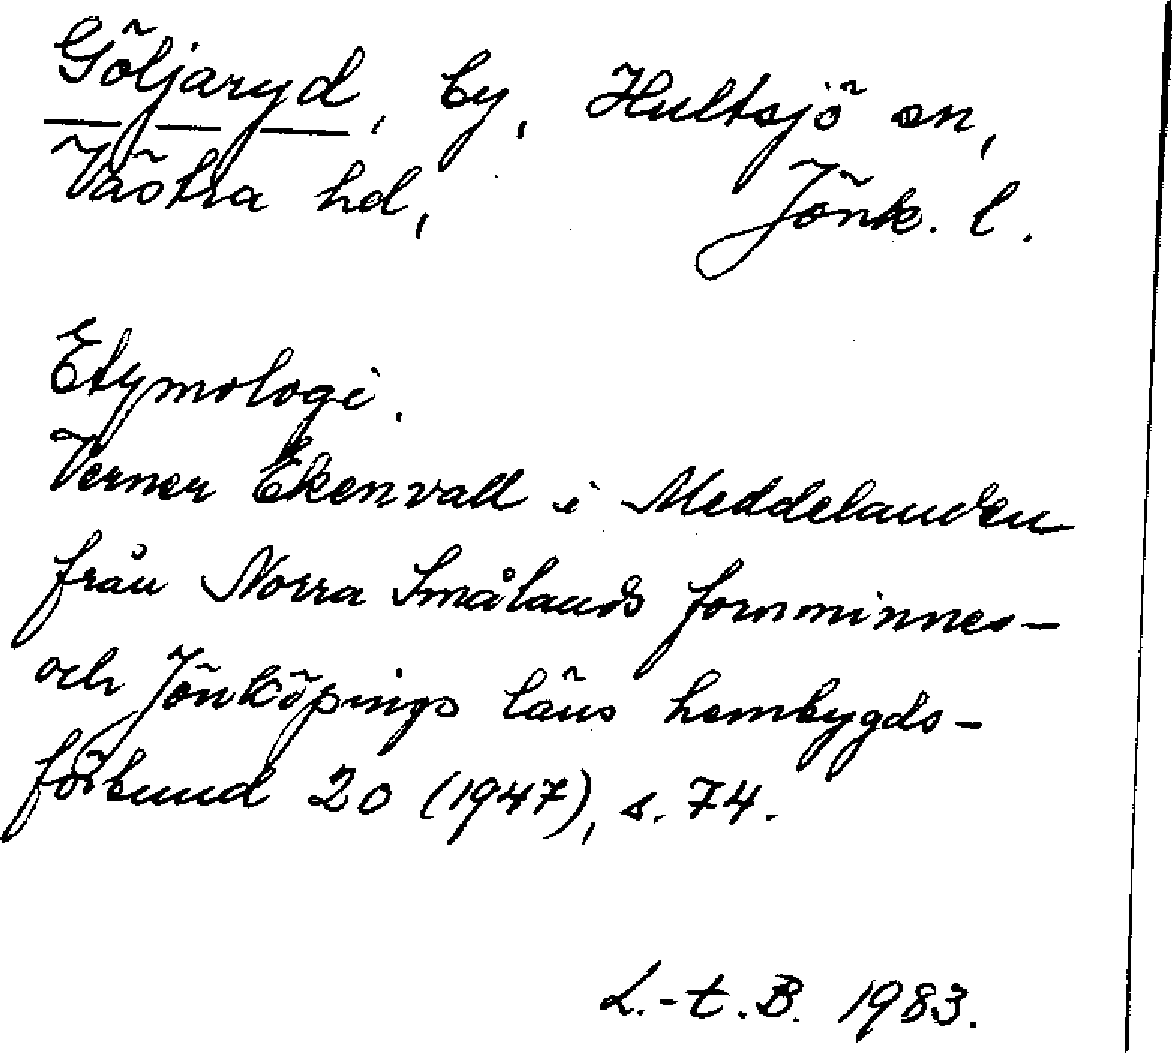 Göljaryd, by, Hultsjö sn,
Västra hd, Jönk. l.
Etymologi.
Verner Ekenvall i Meddelanden
från Norra Smålands fornminnes-
och Jönköpings läns hembygds-
förbund 20 (1947), s. 74.
L.-t. B. 1983.